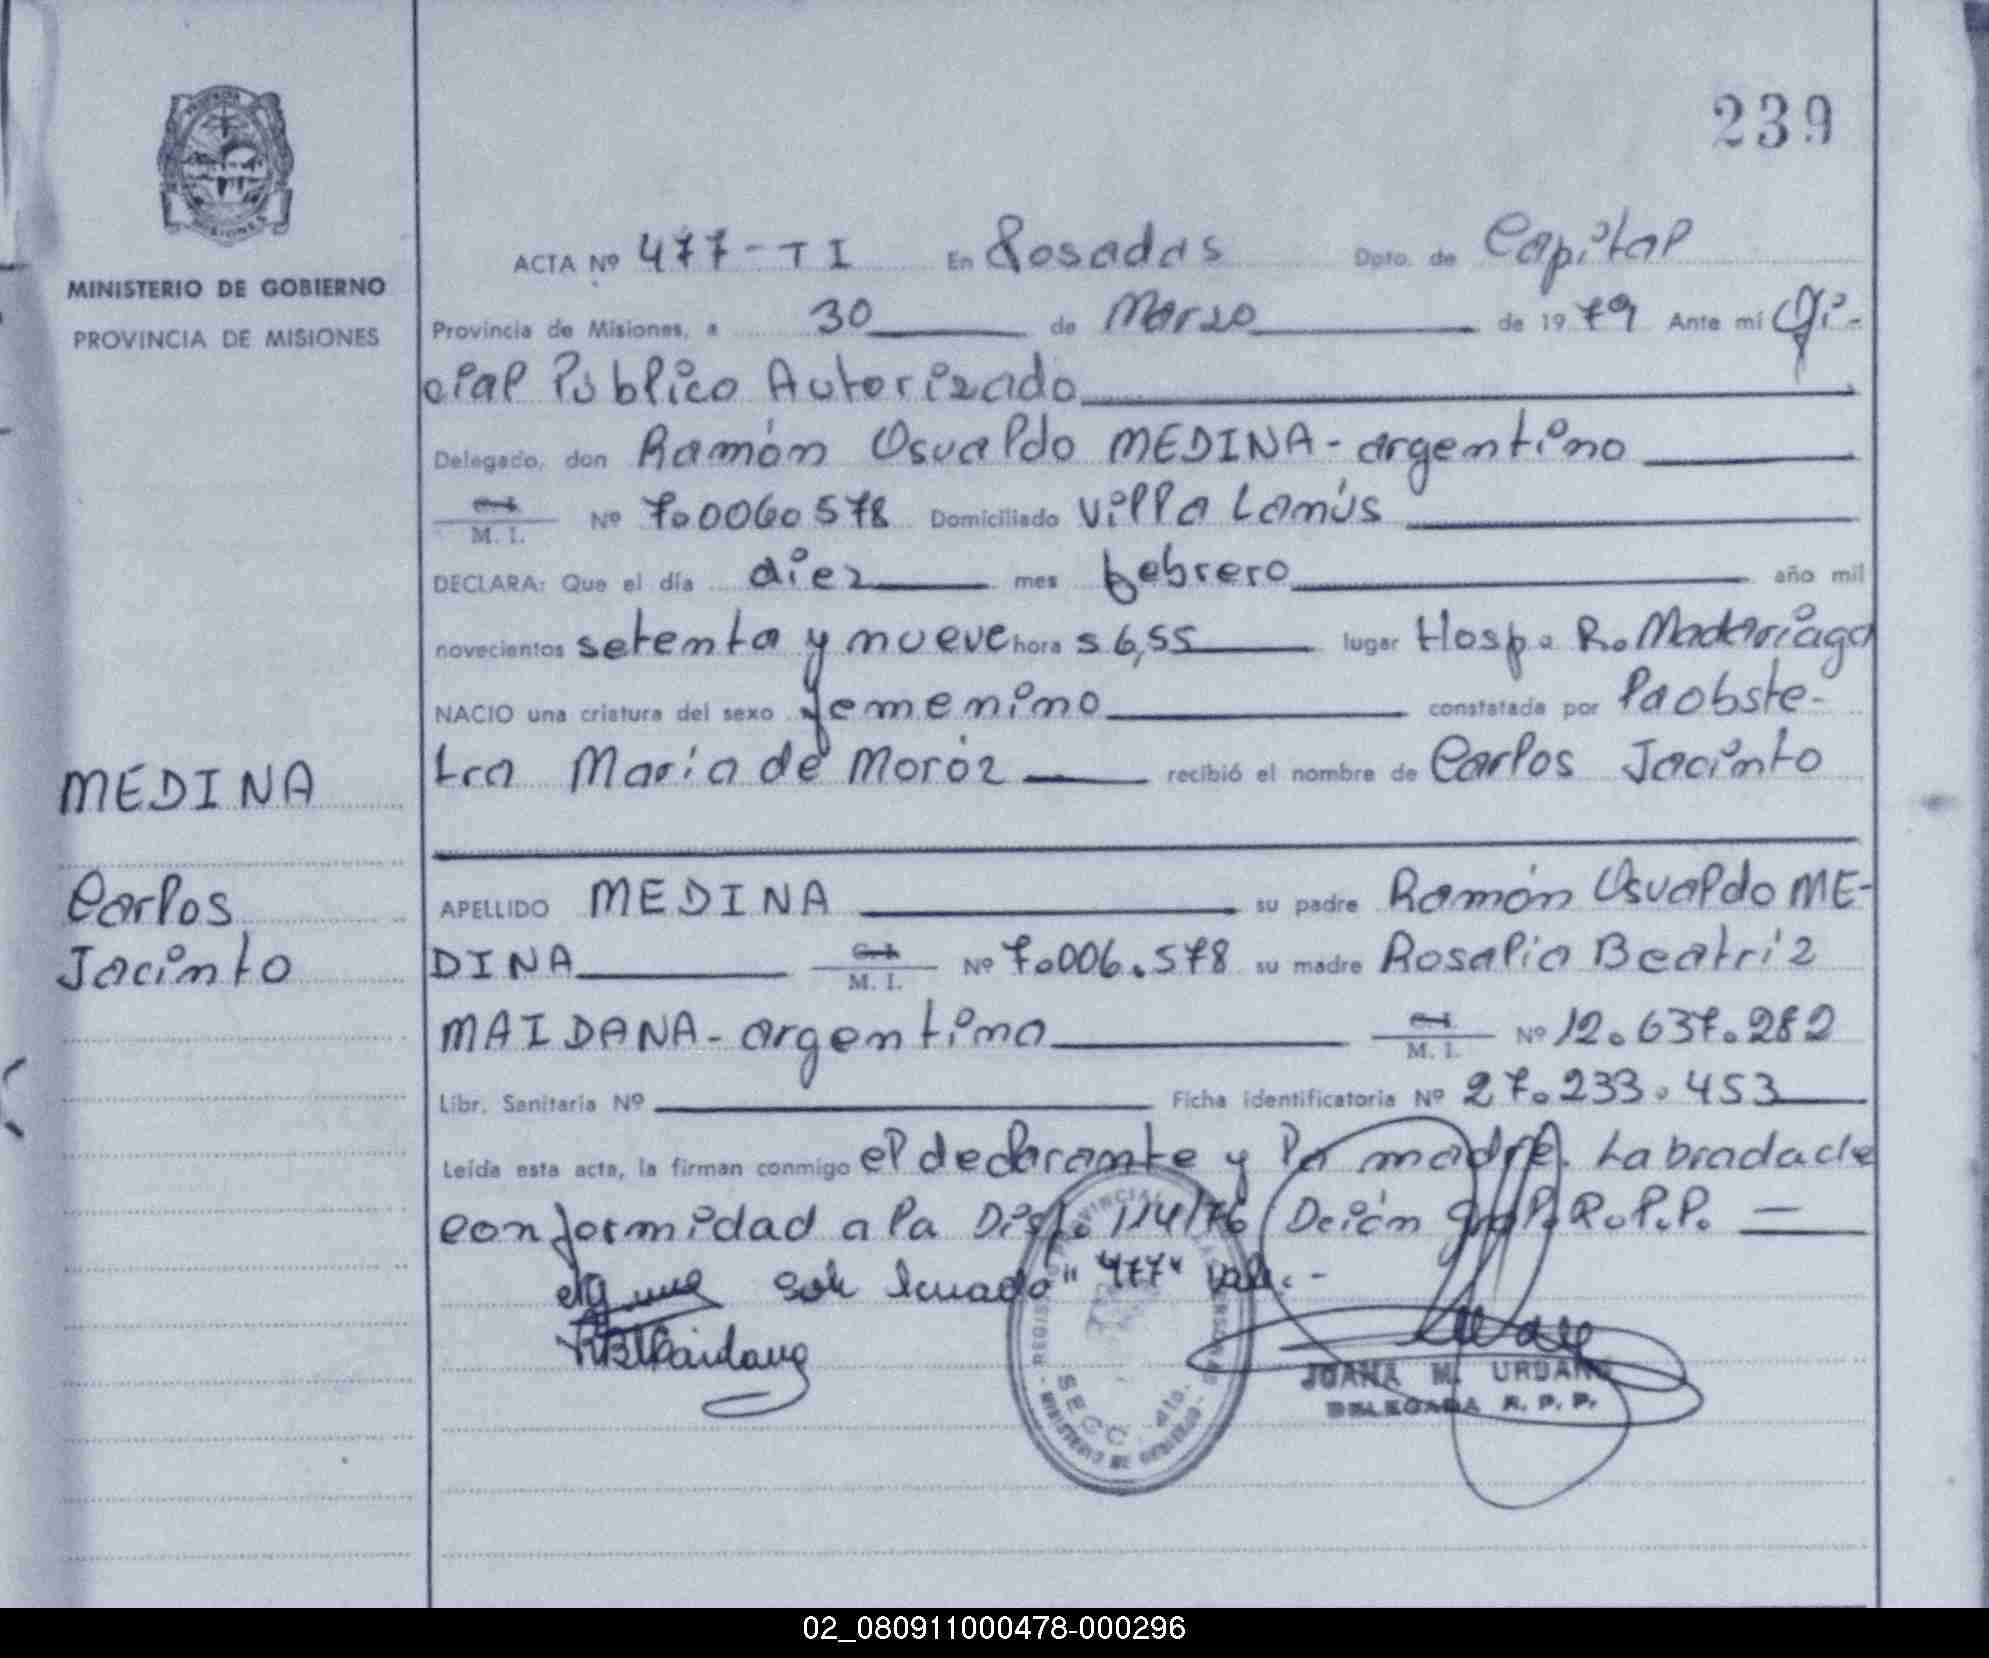 239
MINISTERIO DE GOBIERNO
PROVINCIA DE MISIONES
MEDINA
Carlos
Jacinto
ACTA Nº 477-TI En Posadas Dpto. de Capital
Provincia de Misiones, a 30 de Marzo de 1979 Ante mí Ofi-
cial Público Autorizado
Delegado, don Ramón Osvaldo MEDINA - argentino
M. I. Nº 7.0060578 Domiciliado Villa Lanús
DECLARA: Que el día diez mes febrero año mil
novecientos setenta y nueve hora s 6,55 lugar Hosp. R. Madariaga
NACIO una criatura del sexo femenino constatada por la obste-
tra Maria de Moróz recibió el nombre de Carlos Jacinto
APELLIDO MEDINA su padre Ramón Osvaldo ME-
DINA M. I. Nº 7.006.578 su madre Rosalia Beatriz
MAIDANA - argentina M. I. Nº 12.637.282
Libr. Sanitaria Nº Ficha identificatoria Nº 27.233.453
Leída esta acta, la firman conmigo el declarante y la madre. Labrada de
conformidad a la Disp. 114/76 Dción Gral. R.P.P.
"477" Vale.-
REGISTRO PROVINCIAL DE LAS PERSONAS
SECC. 4ta.
MINISTERIO DE GOBIERNO
JUANA M. URBANO
DELEGADA R. P. P.
02_080911000478-000296